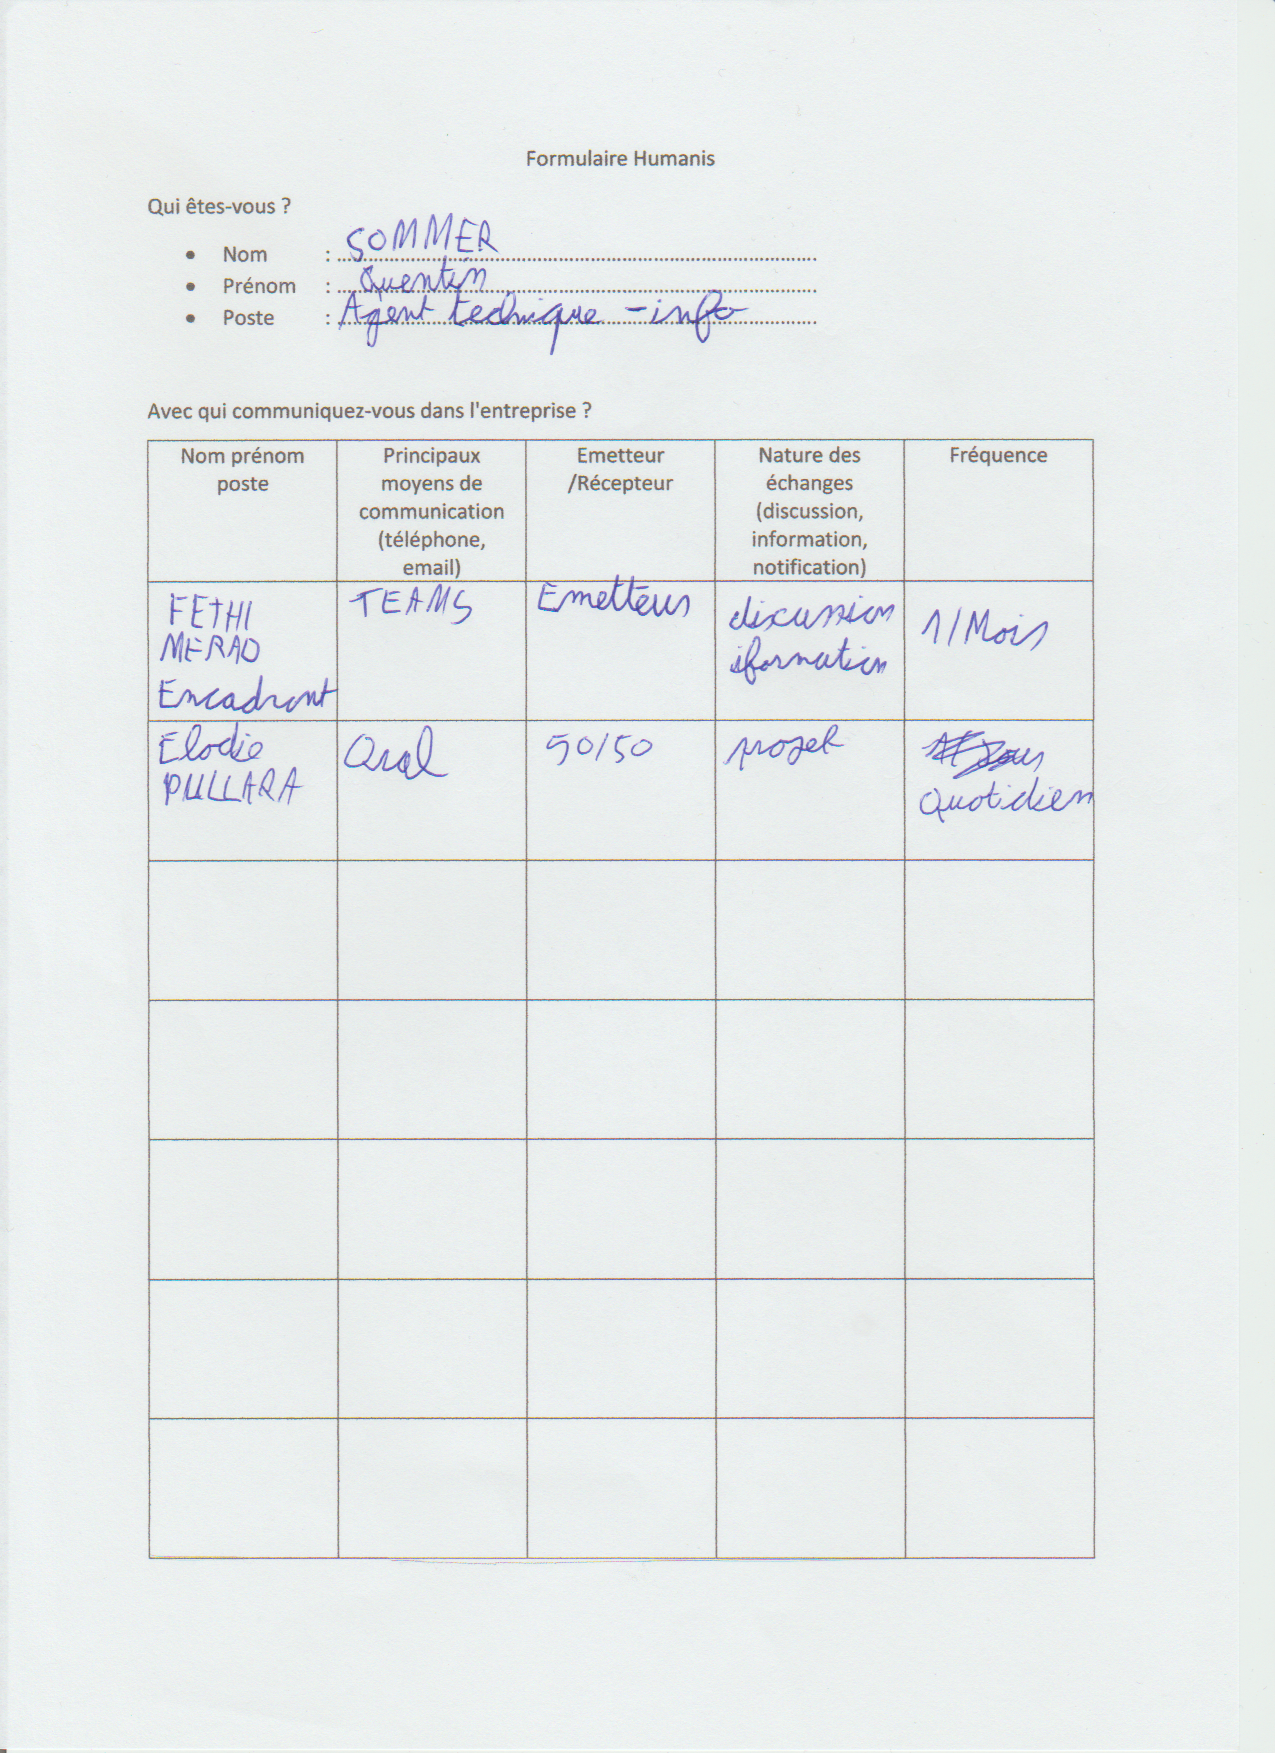 Formulaire Humanis
Qui êtes-vous ?
• Nom : SOMMER
• Prénom : Quentin
• Poste : Agent technique - info
Avec qui communiquez-vous dans l'entreprise ?
Nom prénom
poste
Principaux
moyens de
communication
(téléphone,
email)
Emetteur
/Récepteur
Nature des
échanges
(discussion,
information,
notification)
Fréquence
FETHI
MERAD
Encadrant
TEAMS
Emetteur
discussion
iformation
1/Mois
Elodie
PULLARA
Oral
50/50
projet
Quotidien